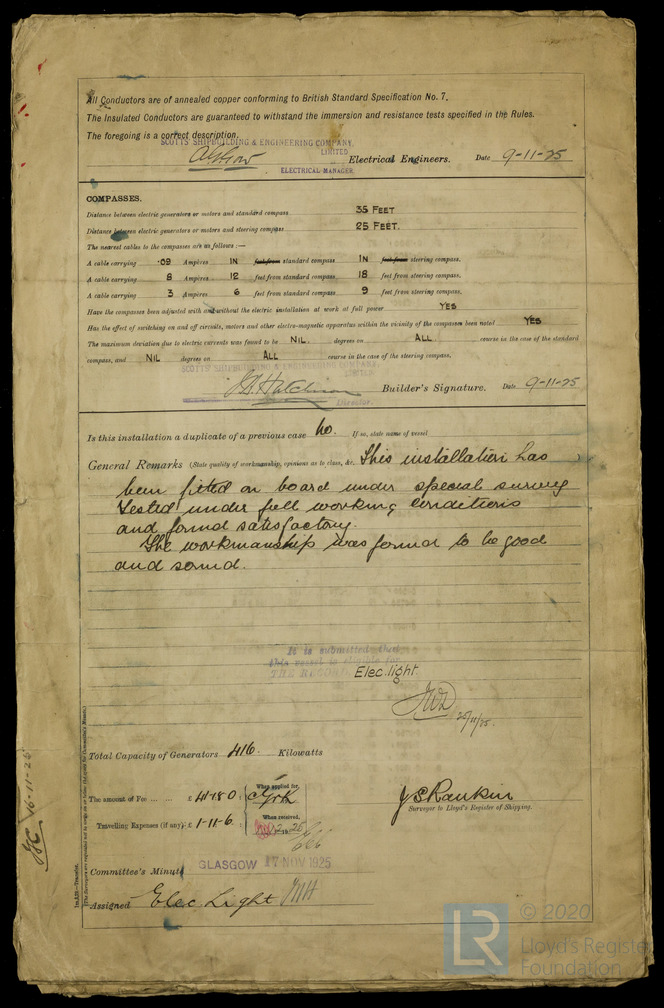 All Conductors are of annealed copper conforming to British Standard Specification No. 7.
The Insulated Conductors are guaranteed to withstand the immersion and resistance tests specified in the Rules.
The foregoing is a correct description.
SCOTTS' SHIPBUILDING & ENGINEERING COMPANY,
LIMITED.
Electrical Engineers. Date 9-11-25
ELECTRICAL MANAGER
COMPASSES.
Distance between electric generators or motors and standard compass 35 FEET
Distance between electric generators or motors and steering compass 25 FEET.
The nearest cables to the compasses are as follows :—
A cable carrying .09 Ampères IN feet from standard compass IN feet from steering compass.
A cable carrying 8 Ampères 12 feet from standard compass 18 feet from steering compass.
A cable carrying 3 Ampères 6 feet from standard compass 9 feet from steering compass.
Have the compasses been adjusted with and without the electric installation at work at full power YES
Has the effect of switching on and off circuits, motors and other electro-magnetic apparatus within the vicinity of the compasses been noted YES
The maximum deviation due to electric currents was found to be NIL. degrees on ALL course in the case of the standard
compass, and NIL degrees on ALL course in the case of the steering compass.
SCOTTS' SHIPBUILDING & ENGINEERING COMPANY,
LIMITED
Builder's Signature. Date 9-11-25
Director.
Is this installation a duplicate of a previous case No. If so, state name of vessel
General Remarks (State quality of workmanship, opinions as to class, &c. This installation has
been fitted on board under special survey
tested under full working conditions
and found satisfactory.
The workmanship was found to be good
and sound.
It is submitted that
this vessel is eligible for
THE RECORD Elec. light.
Total Capacity of Generators 416 Kilowatts
The amount of Fee ... ... £ 41-18-0 When applied for,
J S Rankin
Surveyor to Lloyd's Register of Shipping.
Travelling Expenses (if any) £ 1-11-6 When received,
Committee's Minute GLASGOW 17 NOV 1925
Assigned Elec. Light
16-11-25
© 2020
LR
Lloyd's Register
Foundation